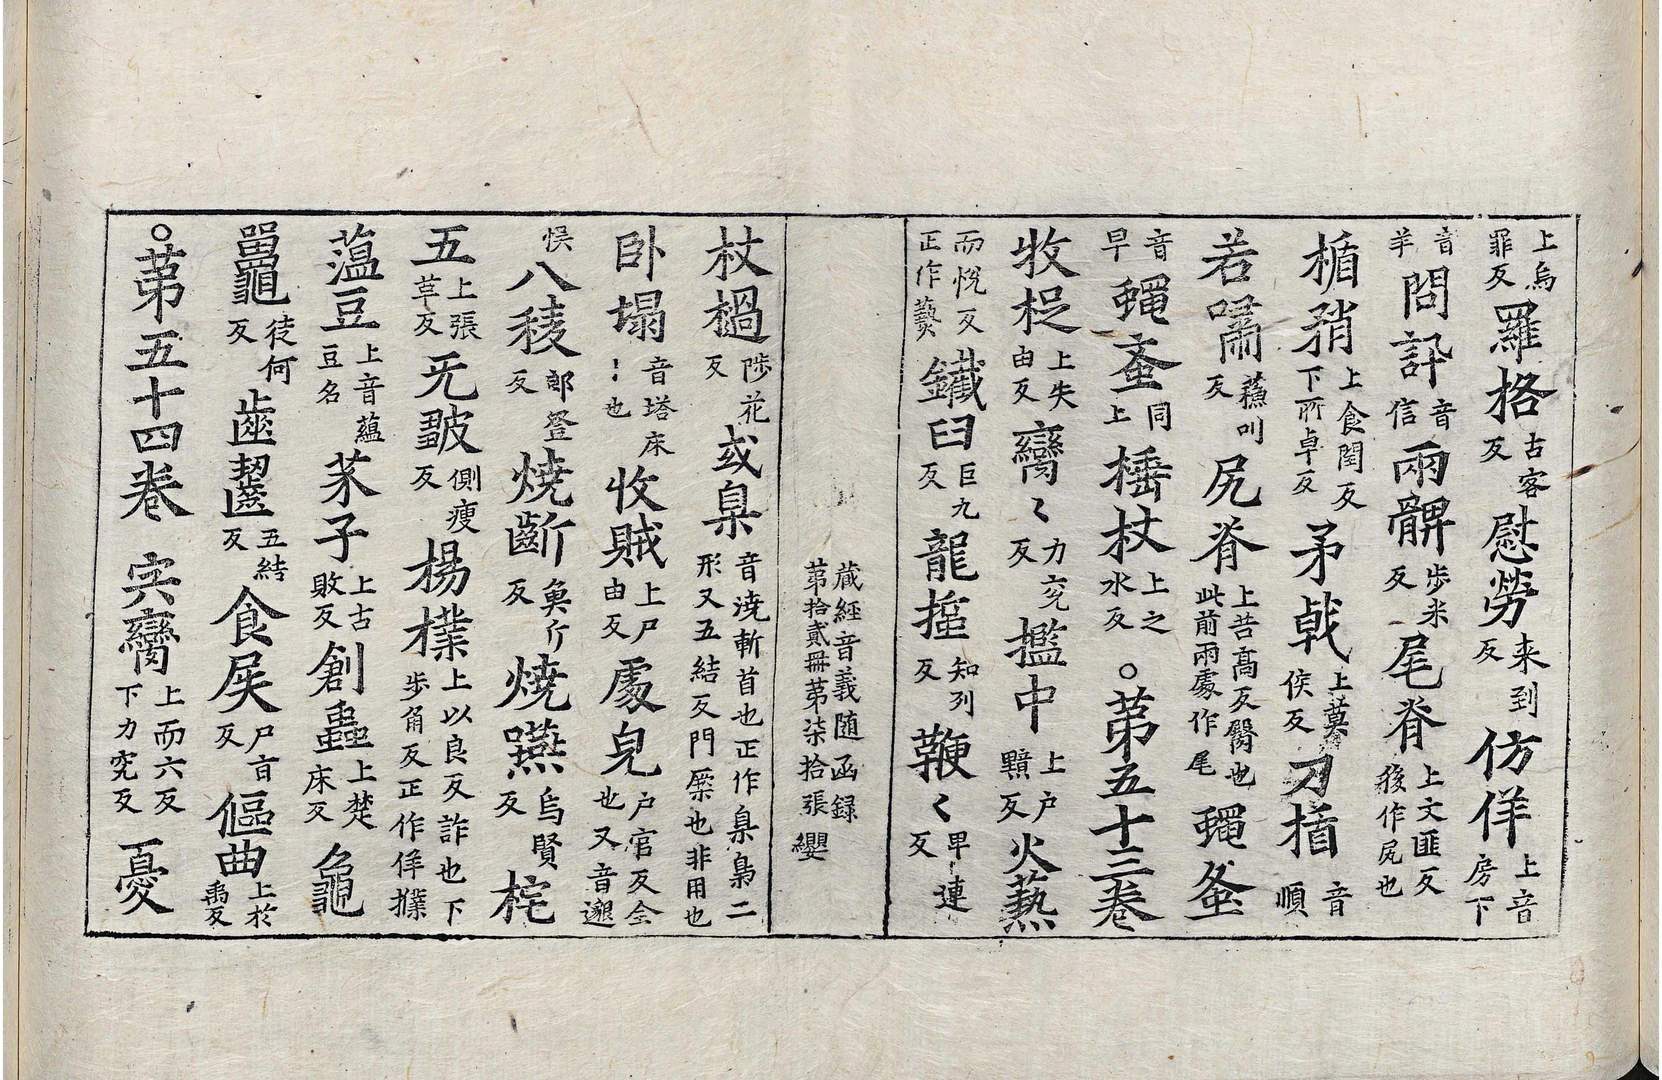 上烏罪反羅格古客反慰勞来到反仿佯上音房下
羊音問訊音信兩髀步米反尾脊上文匪反後作尻也
楯矟上食閏反下所卓反矛戟上莫侯反刀揗音順
若嘯蘓叫反尻脊上苦高反臀也此前兩處作尾蠅蚤
音早蠅蚉同上棰杖上之水反○第五十三卷
收柾上失由反臠〻力兖反㯺中上户黤反火爇
而悅反正作爇鐵臼巨九反龍摳知列反鞭〻早連反
蔵經音義随函録第拾貳冊第柒拾張 纓
杖檛陟花反或梟音澆斬首也正作梟梟二形又五結反門㮆也非用也
卧塌音塔床〻也收賊上尸由反處皃户官反全也又音邈
悮八稜郎登反燒齗魚斤反燒嚥烏賢反椀
五上張草反旡皷側瘦反楊檏上以良反詐也下步角反正作佯撲
薀豆上音蘊豆名䒺子上古敗反創蟲上楚床反龜
鼉鼉徒何反齒齧五結反食屎尸旨反傴曲上於禹反
○第五十四卷 肉臠上而六反下力兖反憂